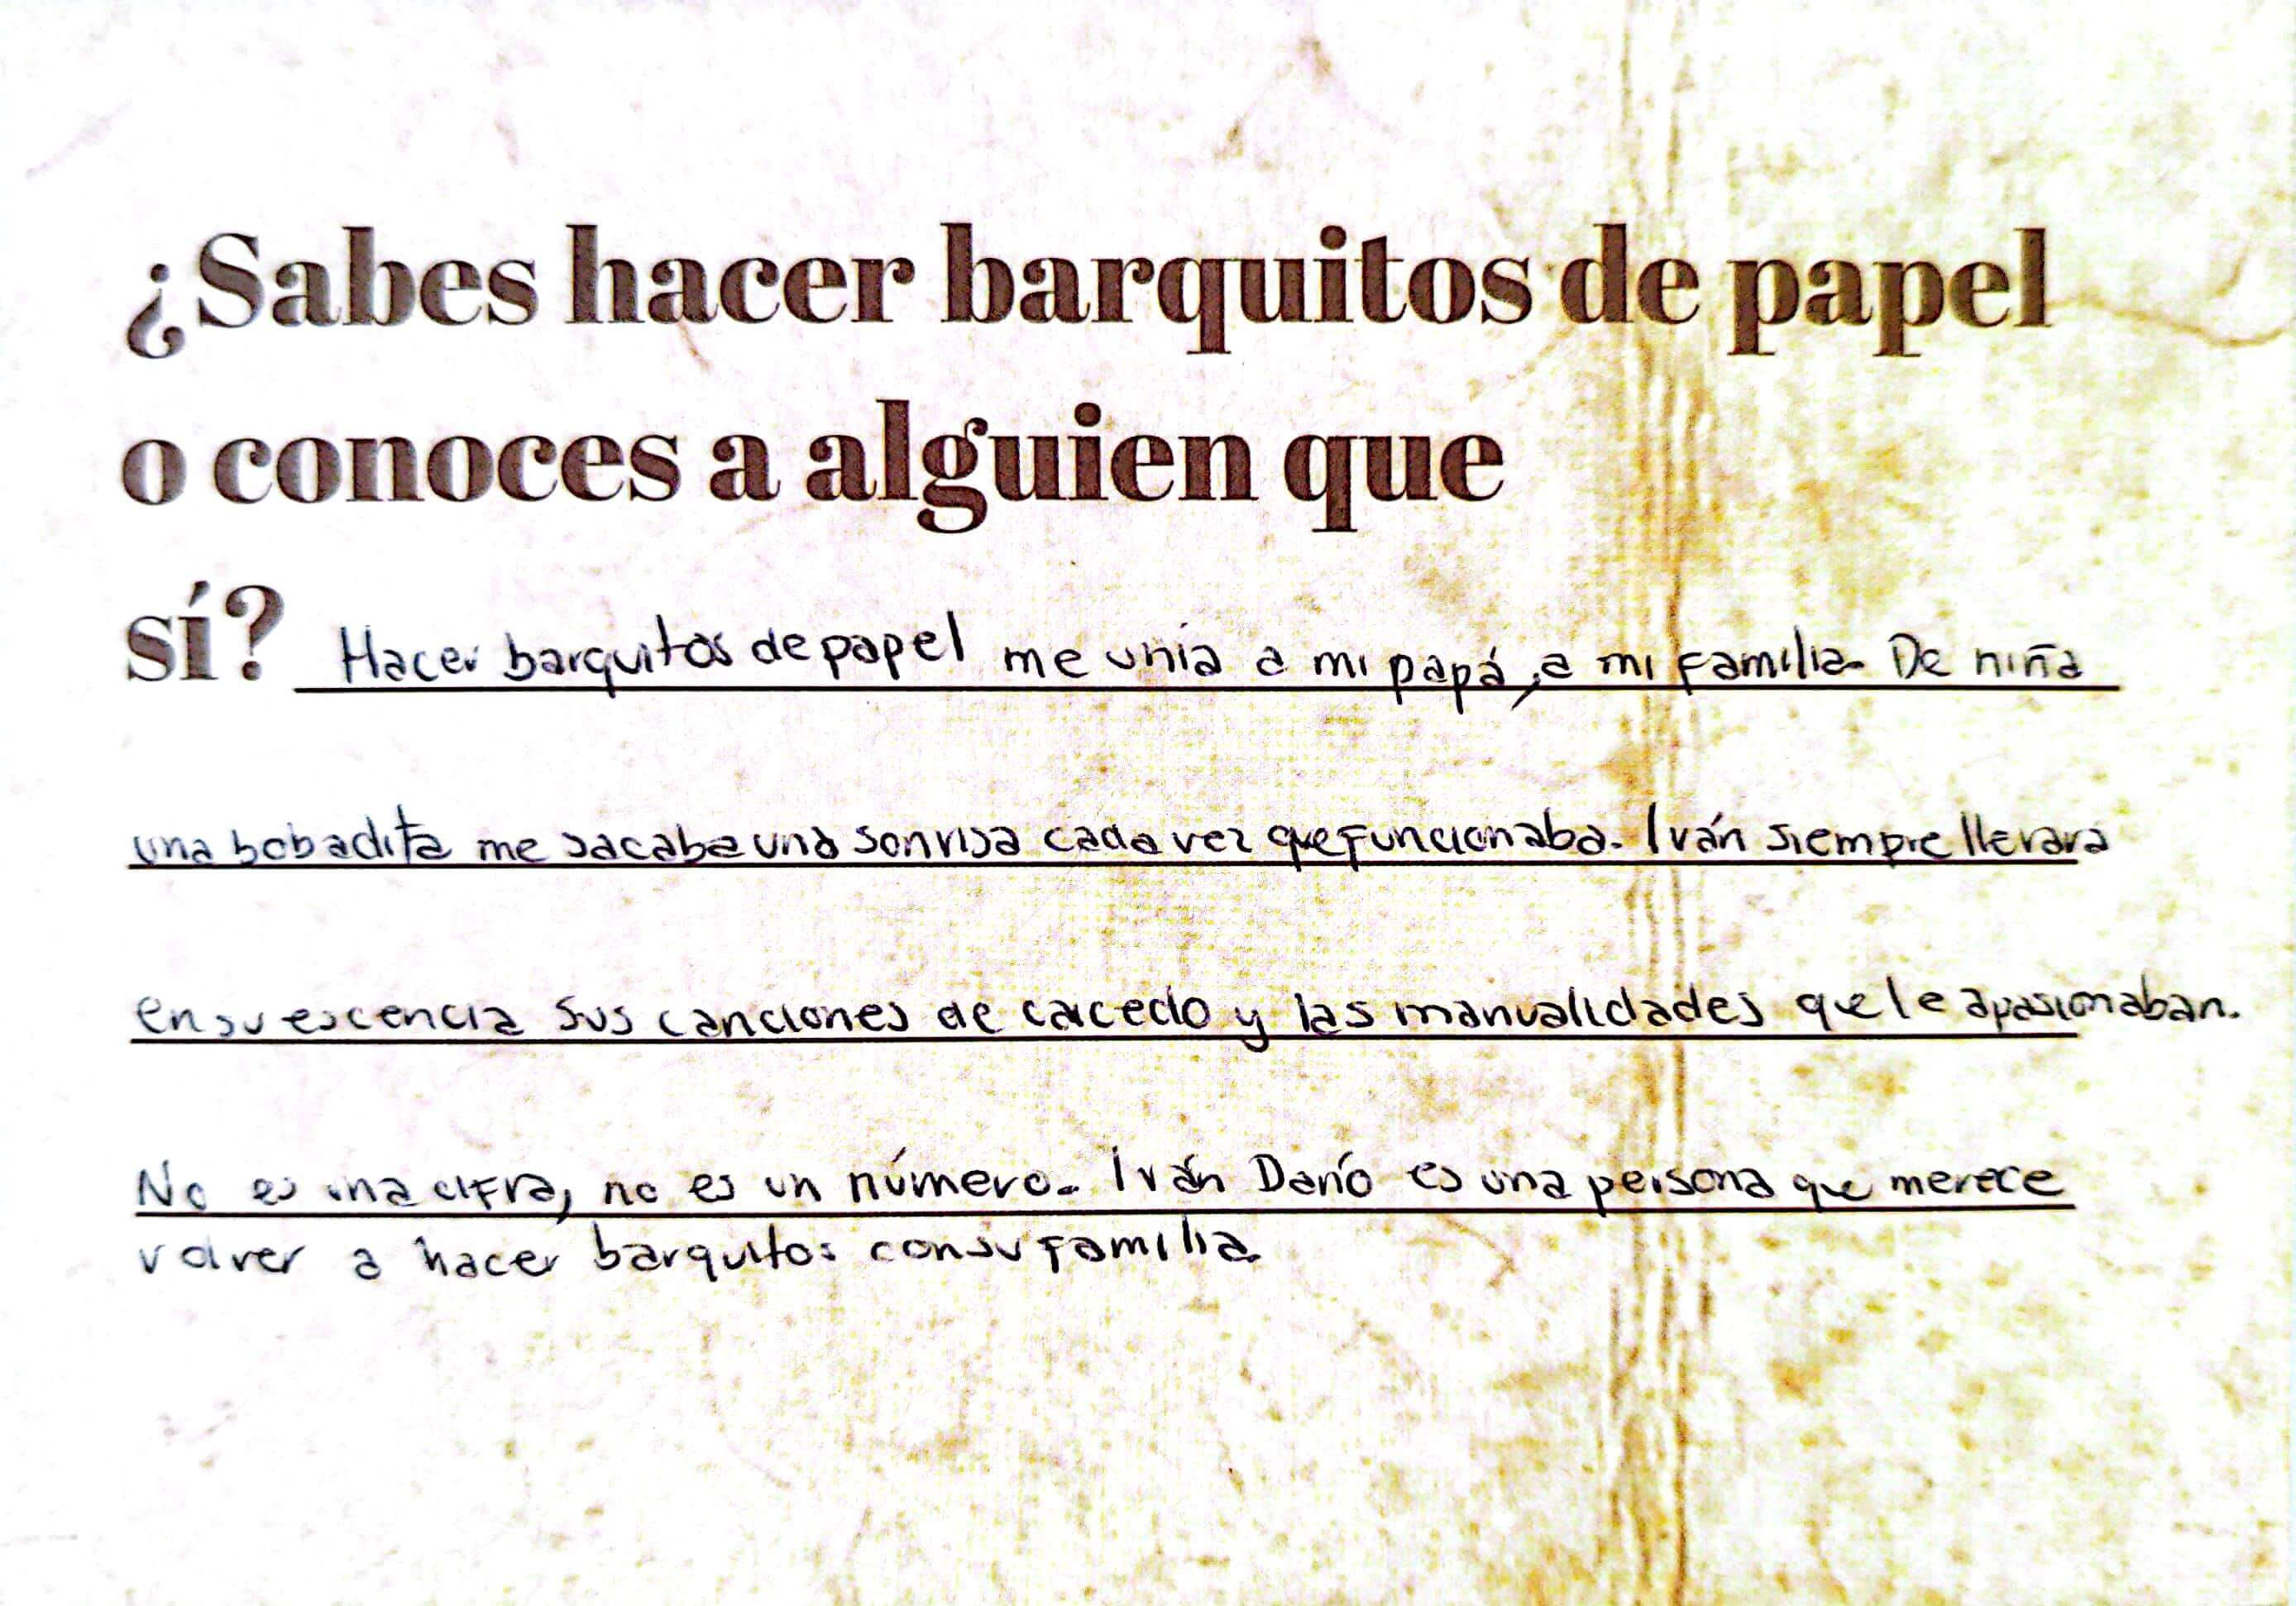 ¿Sabes hacer barquitos de papel
o conoces a alguien que
sí? Hacer barquitos de papel me unía a mi papá, a mi familia. De niña
una bobadita me sacaba una sonrisa cada vez que funcionaba. Iván siempre llevará
en su escencia sus canciones de caicedo y las manualidades que le apasionaban.
No es una cifra, no es un número. Iván Darío es una persona que merece
volver a hacer barquitos con su familia